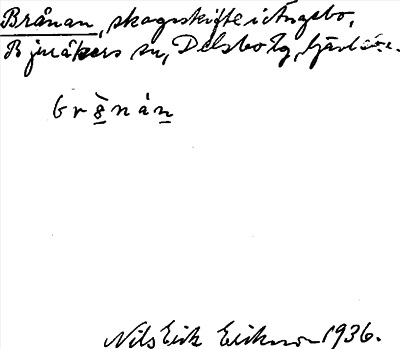 Brånan, skogsskifte i Ängebo,
Bjuråkers sn, Delsbo tg,
brånán
Nils Erik Eriksson 1936.